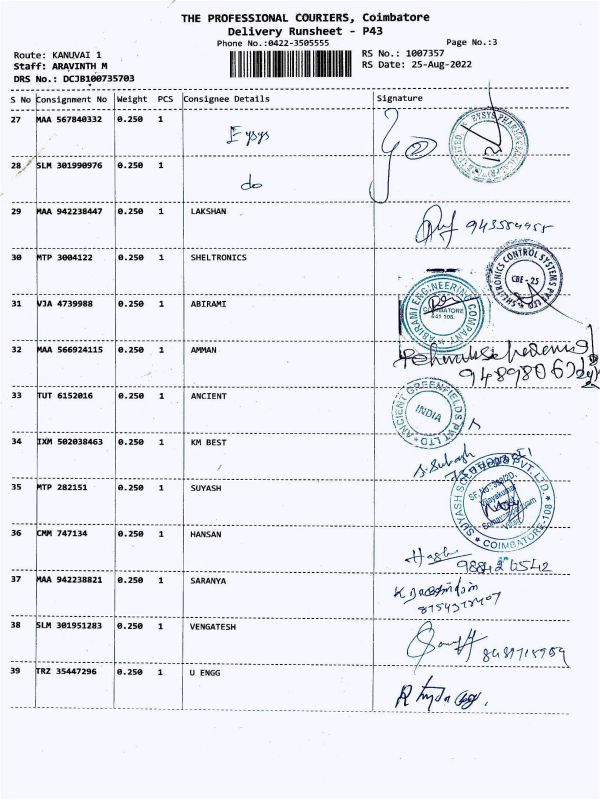 THE PROFESSIONAL COURIERS, Coimbatore
Delivery Runsheet - P43
Phone No.:0422-3505555
Page No.:3
Route: KANUVAI 1
RS No.: 1007357
Staff: ARAVINTH M
RS Date: 25-Aug-2022
DRS No.: DCJB100735703
S No Consignment No Weight PCS Consignee Details Signature
27 MAA 567840332 0.250 1 Eysys
28 SLM 301990976 0.250 1 do
29 MAA 942238447 0.250 1 LAKSHAN
30 MTP 3004122 0.250 1 SHELTRONICS
SHELTRONICS CONTROL SYSTEMS PVT LTD
CBE - 25
31 VJA 4739988 0.250 1 ABIRAMI
ABIRAMI ENGINEERING COMPANY
COIMBATORE
641 108.
32 MAA 566924115 0.250 1 AMMAN
33 TUT 6152016 0.250 1 ANCIENT
ANCIENT GREENFIELDS PVT LTD
INDIA
34 IXM 502038463 0.250 1 KM BEST
35 MTP 282151 0.250 1 SUYASH
SUYASH
PVT. LTD.
COIMBATORE-108
36 CMM 747134 0.250 1 HANSAN
37 MAA 942238821 0.250 1 SARANYA
38 SLM 301951283 0.250 1 VENGATESH
39 TRZ 35447296 0.250 1 U ENGG